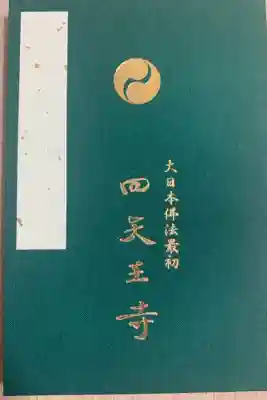 大日本佛法最初
四天王寺